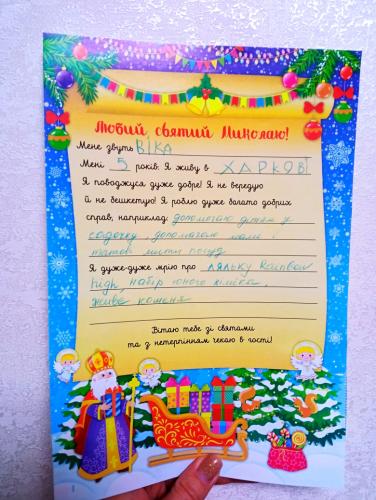 Любий святий Миколаю!
Мене звуть ВІКА
Мені 5 років. Я живу в ХАРКОВІ
Я поводжуся дуже добре! Я не вередую
й не бешкетую! Я роблю дуже багато добрих
справ, наприклад: допомагаю дітям у
садочку, допомагаю мамі і
татові мити посуд.
Я дуже-дуже мрію про ляльку Rainbow
high, набір юного хіміка,
живе кошеня
Вітаю тебе зі святами
та з нетерпінням чекаю в гості!